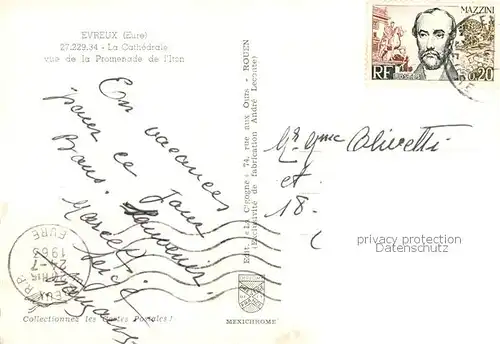 EVREUX (Eure)
27.229.34 - La Cathédrale
vue de la Promenade de l'Iton
En vacances
pour ce jour
Bons souvenirs
Marcel
Edit. « La Cigogne » 74, rue aux Ours - ROUEN
(Exclusivité de fabrication André Leconte)
MAZZINI
RF POSTES 0,20
Mr Mme Olivetti
et
18.
privacy protection
Datenschutz
R.P.
1963
EURE
Collectionnez les Cartes Postales !
MEXICHROME